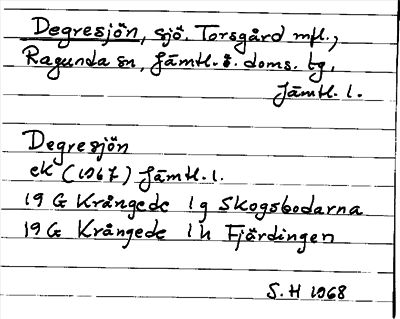 Degresjön, sjö. Torsgård mfl.,
Ragunda sn, Jämtl. ö. doms. tg,
Jämtl. l.
Degresjön
ek (1967) Jämtl. l.
19 G Krångede 1 g Skogsbodarna
19 G Krångede 1 h Fjärdingen
S.H 1968